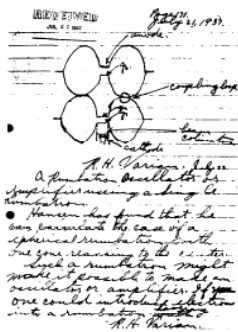 RECEIVED
July 21, 1937.
anode.
coupling loop
cathode
R.H. Varian, July 22
A Rumbatron Oscillator or
amplifier using a single
rumbatron.
Hansen has found that he
can calculate the case of a
spherical rumbatron with
one cone reaching to the center.
Such a rumbatron might
make it possible to make an
oscillator or amplifier. If
one could introduce electrons
into a rumbatron
R.H. Varian.